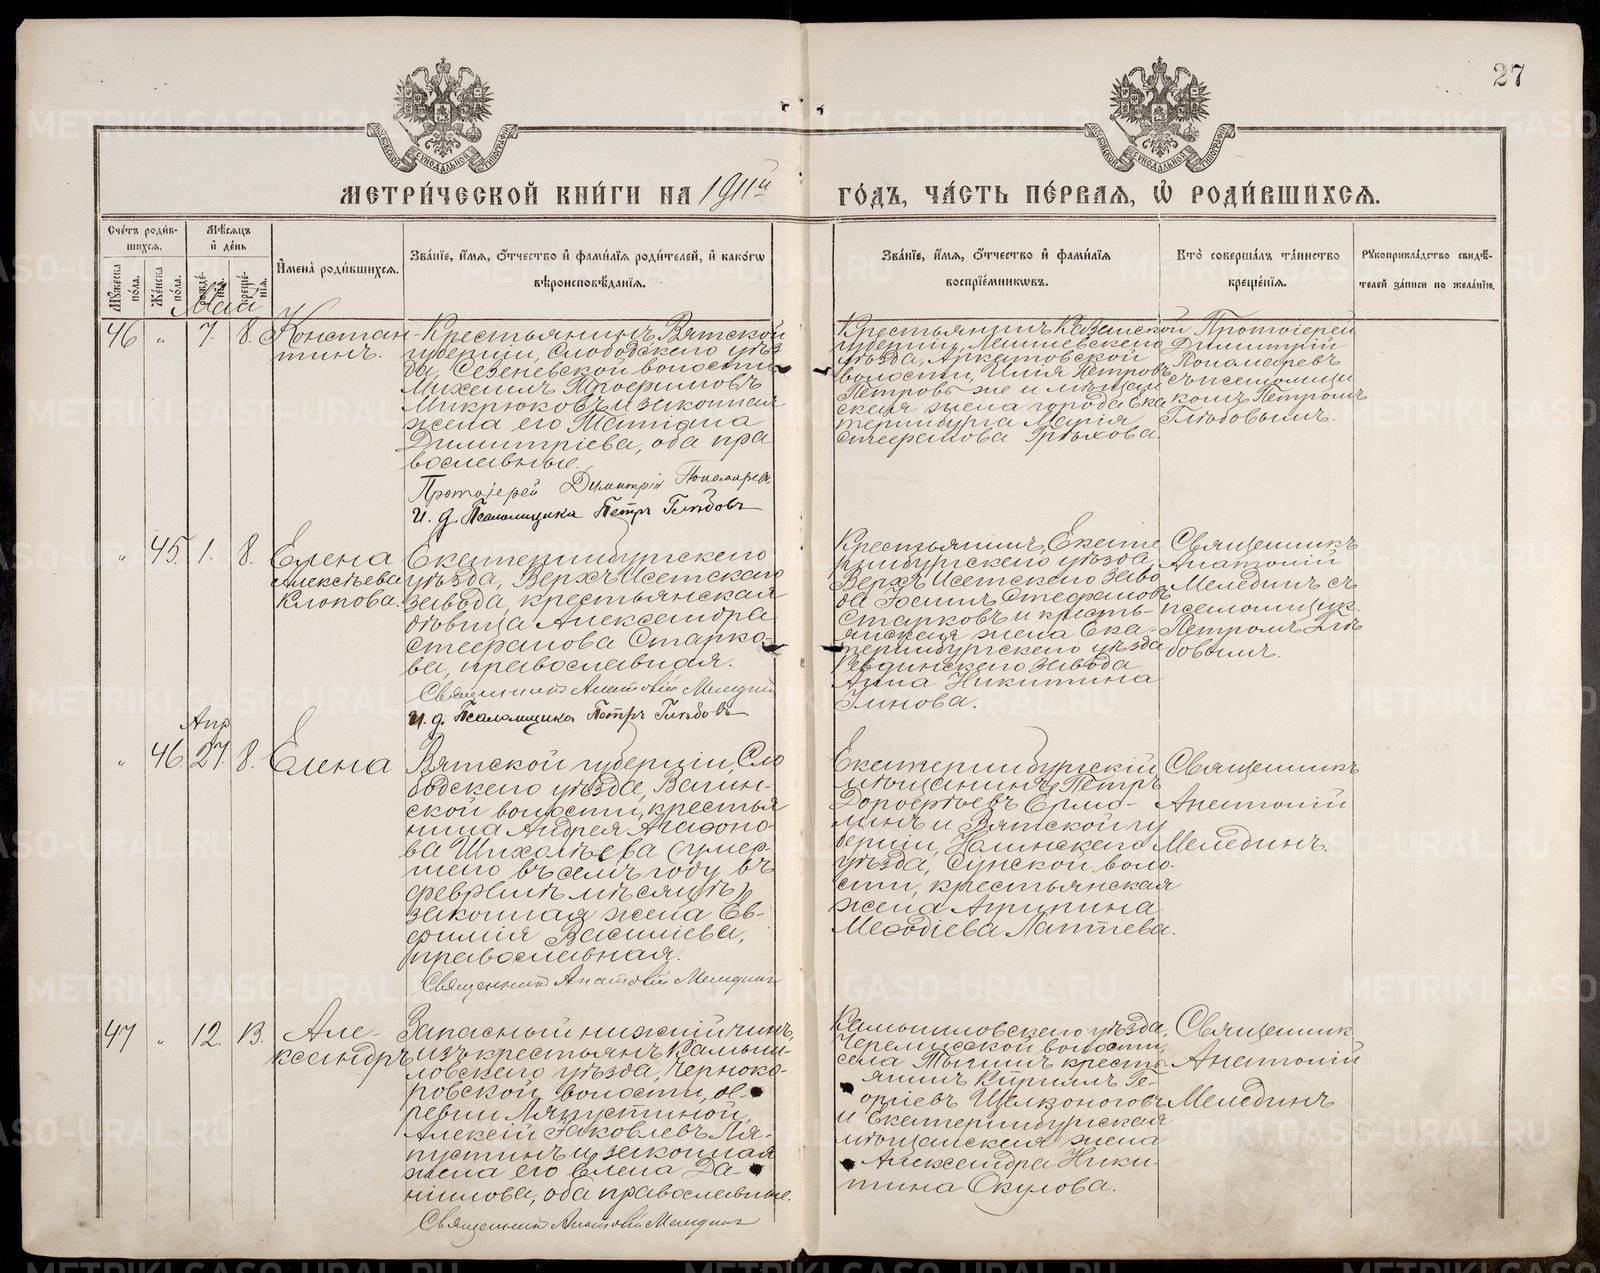 27
МЕТРИ́ЧЕСКОЙ КНИ́ГИ НА 1911й ГО́ДЪ, ЧА́СТЬ ПЕ́РВАЯ, Ѽ РОДИ́ВШИХСѦ.
Сче́тъ роди́в-
шихсѧ.
Мꙋ́жеска по́ла.
Же́нска по́ла.
Мѣ́сѧцъ
и҆ де́нь
рожде́-
нїѧ.
креще́-
нїѧ.
И҆мена̀ роди́вшихсѧ.
Зва́нїе, и҆́мѧ, ѻ҆́тчество и҆ фами́лїѧ роди́телей, и҆ како́гѡ
вѣроисповѣ́данїѧ.
Зва́нїе, и҆́мѧ, ѻ҆́тчество и҆ фами́лїѧ
воспрїе́мникѡвъ.
Кто̀ соверша́лъ та́инство
креще́нїѧ.
Рꙋкоприкла́дство свидѣ́-
телей за́писи по жела́нїю.
Май
46 " 7. 8. Констан-
тинъ.
Крестьянинъ Вятской
губерніи, Слободскаго уѣз
да, Сезеневской волости
Михаилъ Трофимовъ
Микрюковъ и законная
жена его Матрона
Димитріева, оба пра
вославные.
Протоіерей Димитрій Пономаревъ
И. д. Псаломщика Петръ Глѣбовъ
Крестьянинъ Казанской
губерніи, Мамышевского
уѣзда, Аркатовской
волости, Илія Петровъ
Петровъ же и мѣщан
ская жена города Ека
теринбурга Марія
Стефанова Грѣхова.
Протоіерей
Димитрій
Пономаревъ
съ псаломщи
комъ Петромъ
Глѣбовымъ.
" 45. 1. 8. Елена
Алексѣева
Клопова.
Екатеринбургскаго
уѣзда, Верхъ Исетскаго
завода, крестьянская
дѣвица Александра
Стефанова Старко-
ва, православная.
Священникъ Анатолій Меледин
И. д. Псаломщика Петръ Глѣбовъ
Крестьянинъ Екате
ринбургскаго уѣзда,
Верхъ Исетскаго заво
да Іоаннъ Стефановъ
Старковъ и кресть-
янская жена Ека-
теринбургскаго уѣзда
Ревдинскаго завода
Анна Никитина
Зинова.
Священникъ
Анатолій
Мелединъ съ
псаломщик.
Петромъ Глѣ
бовымъ.
Апр
" 46 27. 8. Елена
Вятской губерніи, Сло
бодскаго уѣзда, Вагин-
ской волости, крестья
нина Андрея Агафоно-
ва Шихалѣева (умер-
шаго въ семъ году въ
февралѣ мѣсяцѣ)
законная жена Ев-
фимія Василіева,
православная.
Священникъ Анатолій Меледин
Екатеринбургскій
мѣщанинъ Петръ
Дорофеевъ Ермо-
линъ и Вятской гу
берніи, Нолинскаго
уѣзда, Сунской воло-
сти, крестьянская
жена Агрипина
Меѳодіева Лаптева.
Священникъ
Анатолій
Мелединъ.
47 " 12. 13. Але-
ксандръ
Запасный нижній чинъ,
изъ крестьянъ Камыш-
ловскаго уѣзда, Черноко-
ровской волости, де-
ревни Ляпустиной,
Алексій Іаковлевъ Ля-
пустинъ и законная
жена его Елена Да-
ніилова, оба православные.
Священникъ Анатолій Меледин
Камышловскаго уѣзда,
Черемисской волости,
села Тыгишъ кресть
янинъ Кириллъ Ге-
оргіевъ Щелконоговъ
и Екатеринбургская
мѣщанская жена
Александра Ники-
тина Окулова.
Священник
Анатолій
Мелединъ
METRIKI.GASO-URAL.RU